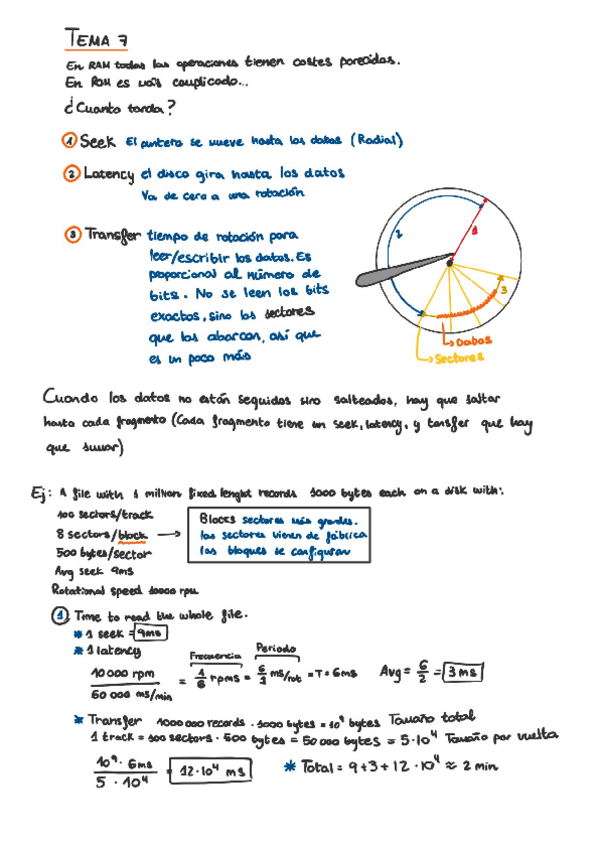 TEMA 7
En RAM todas las operaciones tienen costes parecidos.
En ROM es más complicado...
¿Cuanto tarda?
1 Seek El puntero se mueve hasta los datos (Radial)
2 Latency el disco gira hasta los datos
Va de cero a una rotación
3 Transfer tiempo de rotación para
leer/escribir los datos. Es
proporcional al número de
bits. No se leen los bits
exactos, sino los sectores
que los abarcan, así que
es un poco más
1
2
3
Datos
Sectores
Cuando los datos no están seguidos sino salteados, hay que saltar
hasta cada fragmento (Cada fragmento tiene un seek, latency, y tansfer que hay
que sumar)
Ej: A file with 1 million fixed lenght records 1000 bytes each on a disk with:
100 sectors/track
8 sectors/block
500 bytes/sector
Avg seek 9ms
Rotational speed 10000 rpm
Blocks sectores más grandes.
los sectores vienen de fábrica
los bloques se configuran
1 Time to read the whole file.
* 1 seek = 9ms
* 1 latency
Frecuencia Periodo
10 000 rpm / 60 000 ms/min = 1/6 rpms = 6/1 ms/rot = T = 6ms Avg = 6/2 = 3 ms
* Transfer 1000 000 records · 1000 bytes = 10⁹ bytes Tamaño total
1 track = 100 sectors · 500 bytes = 50 000 bytes = 5·10⁴ Tamaño por vuelta
10⁹ · 6ms / 5 · 10⁴ = 12·10⁴ ms * Total = 9+3+12·10⁴ ≈ 2 min